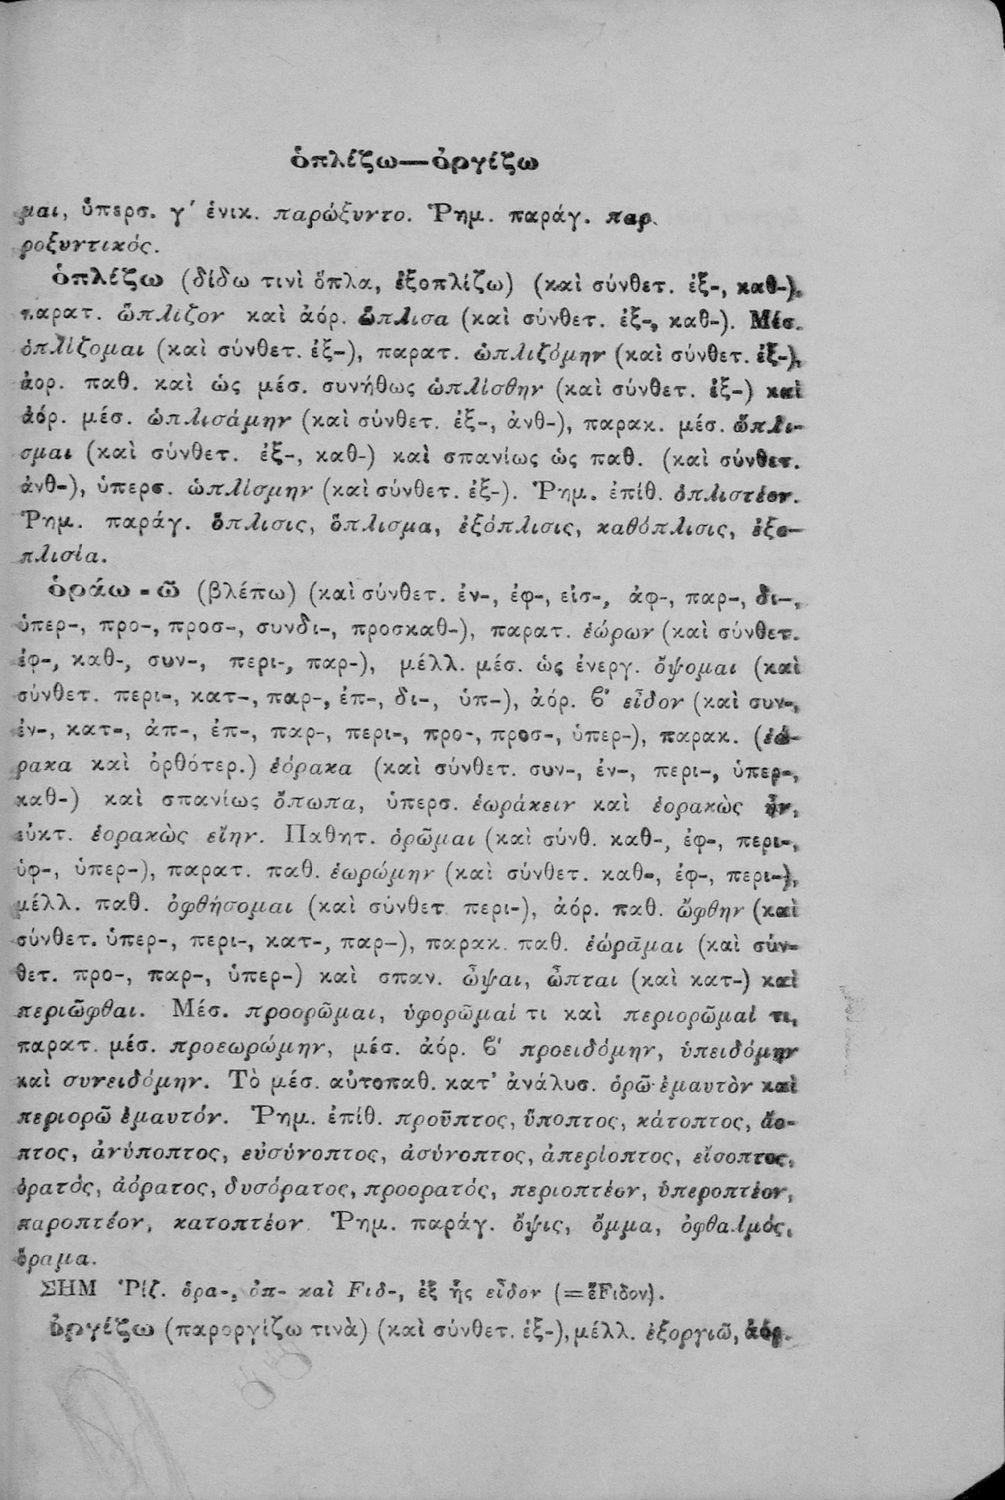 ὁπλίζω—ὀργίζω
μαι, ὑπερσ. γ΄ ἑνικ. παρώξυντο. Ῥημ. παράγ. παρ
ροξυντικός.
ὁπλίζω (δίδω τινὶ ὅπλα, ἐξοπλίζω) (καὶ σύνθετ. ἐξ-, καθ-),
παρατ. ὥπλιζον καὶ ἀόρ. ὥπλισα (καὶ σύνθετ. ἐξ-, καθ-). Μέσ.
ὁπλίζομαι (καὶ σύνθετ. ἐξ-), παρατ. ὡπλιζόμην (καὶ σύνθετ. ἐξ-),
ἀορ. παθ. καὶ ὡς μέσ. συνήθως ὡπλίσθην (καὶ σύνθετ. ἐξ-) καὶ
ἀόρ. μέσ. ὡπλισάμην (καὶ σύνθετ. ἐξ-, ἀνθ-), παρακ. μέσ. ὥπλι-
σμαι (καὶ σύνθετ. ἐξ-, καθ-) καὶ σπανίως ὡς παθ. (καὶ σύνθετ.
ἀνθ-), ὑπερσ. ὡπλίσμην (καὶ σύνθετ. ἐξ-). Ῥημ. ἐπίθ. ὁπλιστέον.
Ῥημ. παράγ. ὅπλισις, ὅπλισμα, ἐξόπλισις, καθόπλισις, ἐξο-
πλισία.
ὁράω - ῶ (βλέπω) (καὶ σύνθετ. ἐν-, ἐφ-, εἰσ-, ἀφ-, παρ-, δι-,
ὑπερ-, προ-, προσ-, συνδι-, προσκαθ-), παρατ. ἑώρων (καὶ σύνθετ.
ἐφ-, καθ-, συν-, περι-, παρ-), μέλλ. μέσ. ὡς ἐνεργ. ὄψομαι (καὶ
σύνθετ. περι-, κατ-, παρ-, ἐπ-, δι-, ὑπ-), ἀόρ. β΄ εἶδον (καὶ συν-,
ἐν-, κατ-, ἀπ-, ἐπ-, παρ-, περι-, προ-, προσ-, ὑπερ-), παρακ. (ἑώ-
ρακα καὶ ὀρθότερ.) ἑόρακα (καὶ σύνθετ. συν-, ἐν-, περι-, ὑπερ-,
καθ-) καὶ σπανίως ὄπωπα, ὑπερσ. ἑωράκειν καὶ ἑορακὼς ἦν,
εὐκτ. ἑορακὼς εἴην. Παθητ. ὁρῶμαι (καὶ σύνθ. καθ-, ἐφ-, περι-,
ὑφ-, ὑπερ-), παρατ. παθ. ἑωρώμην (καὶ σύνθετ. καθ-, ἐφ-, περι-),
μέλλ. παθ. ὀφθήσομαι (καὶ σύνθετ περι-), ἀόρ. παθ. ὤφθην (καὶ
σύνθετ. ὑπερ-, περι-, κατ-, παρ-), παρακ. παθ. ἑώραμαι (καὶ σύν-
θετ. προ-, παρ-, ὑπερ-) καὶ σπαν. ὦψαι, ὦπται (καὶ κατ-) καὶ
περιῶφθαι. Μέσ. προορῶμαι, ὑφορῶμαί τι καὶ περιορῶμαί τι,
παρατ. μέσ. προεωρώμην, μέσ. ἀόρ. β΄ προειδόμην, ὑπειδόμην
καὶ συνειδόμην. Τὸ μέσ. αὐτοπαθ. κατ᾽ ἀνάλυσ. ὁρῶ ἐμαυτὸν καὶ
περιορῶ ἐμαυτόν. Ῥημ. ἐπίθ. προῦπτος, ὕποπτος, κάτοπτος, ἄο-
πτος, ἀνύποπτος, εὐσύνοπτος, ἀσύνοπτος, ἀπερίοπτος, εἴσοπτος,
ὁρατός, ἀόρατος, δυσόρατος, προορατός, περιοπτέον, ὑπεροπτέον,
παροπτέον, κατοπτέον. Ῥημ. παράγ. ὄψις, ὄμμα, ὀφθαλμός,
ὅραμα.
ΣΗΜ Ῥίζ. ὁρα-, ὀπ- καὶ Fιδ-, ἐξ ἧς εἶδον (=ἔFιδον).
ὀργίζω (παροργίζω τινὰ) (καὶ σύνθετ. ἐξ-), μέλλ. ἐξοργιῶ, ἀόρ.